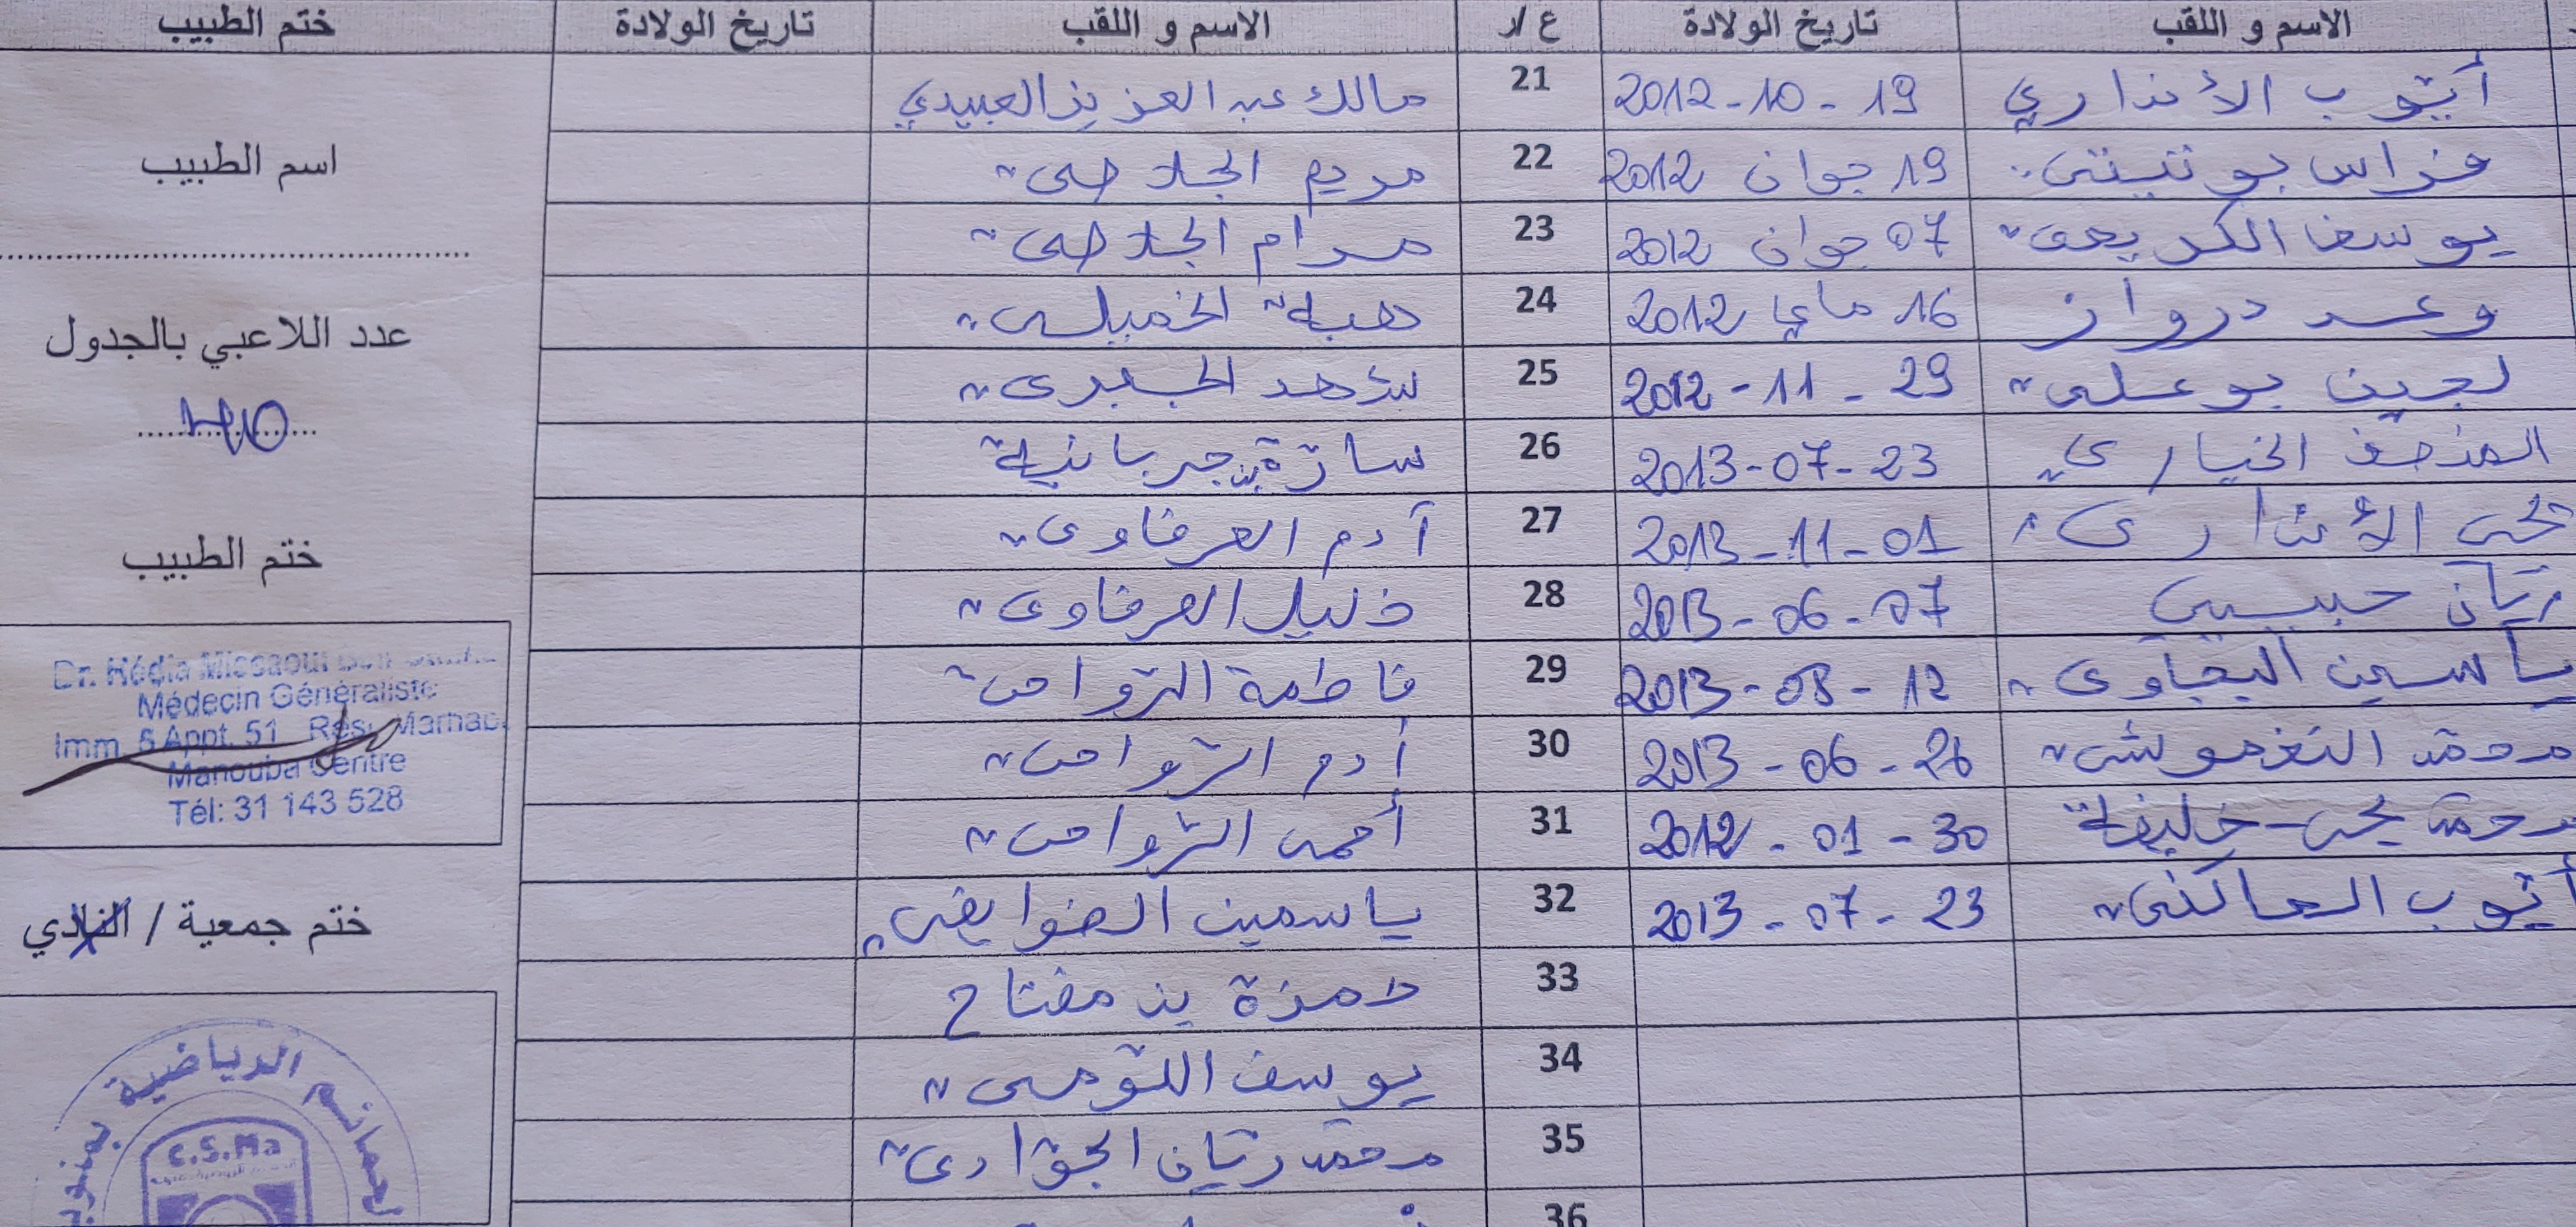 الاسم و اللقب تاريخ الولادة ع/ر الاسم و اللقب تاريخ الولادة ختم الطبيب
أيّوب الأنذاري 19 - 10 - 2012 21 مالك عبد العزيز العبيدي
فراس بو تيتي 19 جوان 2012 22 مريم الجلاصي
اسم الطبيب
يوسف الكريمي 07 جوان 2012 23 مرام الجلاصي
وعد درواز 16 ماي 2012 24 هبة الخميلي
عدد اللاعبي بالجدول
لجين بوعلي 29 - 11 - 2012 25
المنصف الخياري 23-07-2013 26 سارة جربانية
01-11-2013 27 آدم العرفاوي
ختم الطبيب
ريّان حبيبي 07 - 06 - 2013 28 خليل العرفاوي
ياسين البجاوي 12 - 08 - 2013 29 فاطمة الزوامي
Dr. Hédia Missaoui
Médecin Généraliste
Imm. 5 Appt. 51 Rés. Marhaba
Manouba Centre
Tél: 31 143 528
محمد النغموشي 26 - 06 - 2013 30 أدم الزوامي
محمد يحي خليفة 30 - 01 - 2012 31 أحمد الزوامي
أيّوب العاكني 23 - 07 - 2013 32 ياسمين الضوايفي
ختم جمعية / النادي
33 حمزة بن مفتاح
34 يوسف اللّومي
35 محمد ريّان الجوّادي
36
الرياضية
C.S.Ma